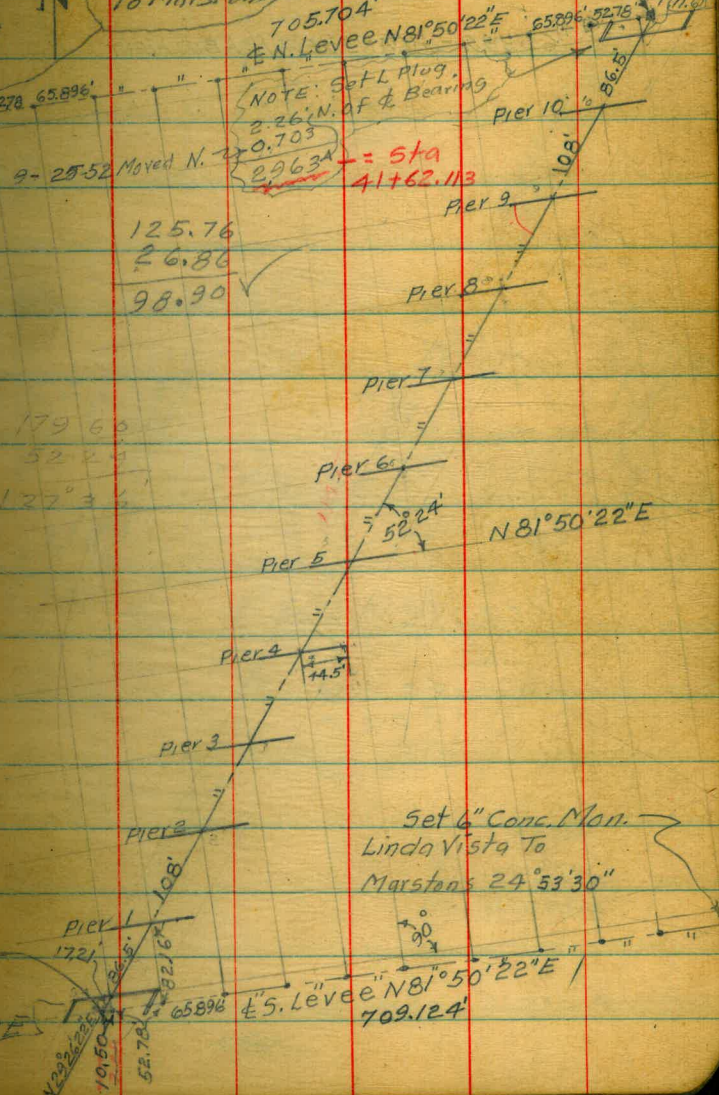 N
705.704'
℄ N. Levee N81°50'22"E 65.896' 52.78'
65.896' " " "
NOTE: Set L Plug
2.26' N. of ℄ Bearing
9-25-52 Moved N. 0.703
2.963 = Sta
41+62.113
86.5'
Pier 10
108'
Pier 9
125.76
26.86
98.90 ✓
Pier 8
Pier 7
179 60
52 24
127°36'
Pier 6
52°24'
N 81°50'22"E
Pier 5
Pier 4
14.5'
Pier 3
Pier 2
Set 6" Conc. Mon.
Linda Vista To
Marstons 24°53'30"
108'
Pier 1
90°
17.21'
86.5'
82.16'
65.896' ℄ S. Levee N81°50'22"E
709.124'
52.78'
10.50
N29°26'22"E